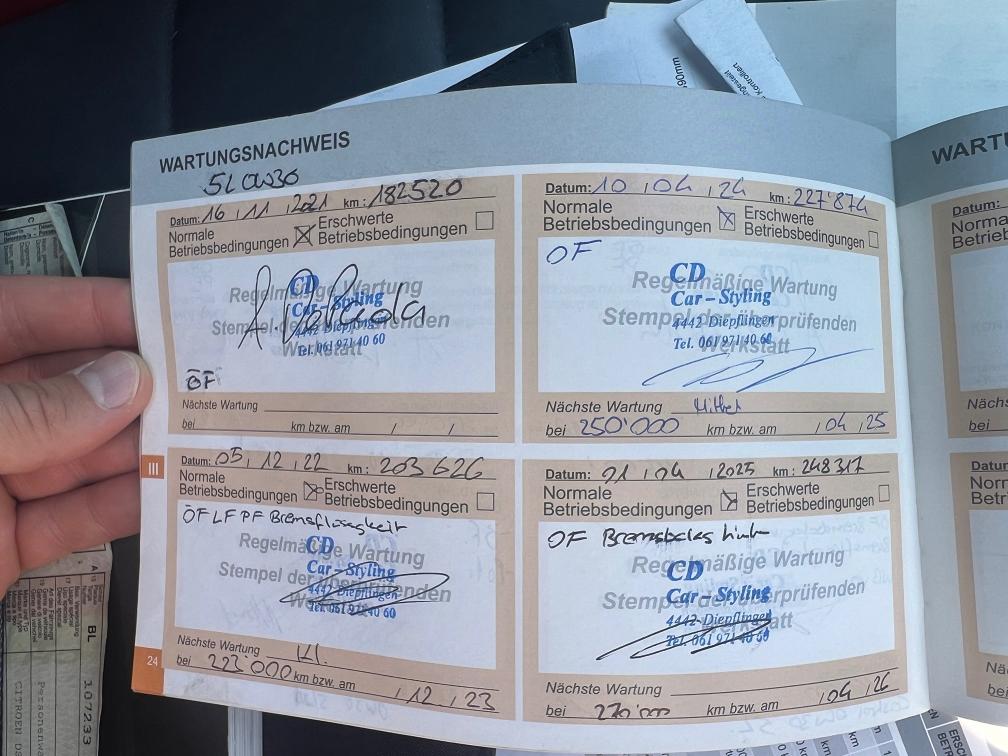 WARTUNGSNACHWEIS
5L 0W30
Datum: 16 / 11 / 2021 km: 182520
Normale Betriebsbedingungen ☒ Erschwerte Betriebsbedingungen ☐
Regelmäßige Wartung
Stempel der überprüfenden
Werkstatt
CD
Car-Styling
4442 Diepflingen
Tel. 061 971 40 60
ÖF
Nächste Wartung
bei km bzw. am / /
Datum: 10 / 04 / 24 km: 227'874
Normale Betriebsbedingungen ☒ Erschwerte Betriebsbedingungen ☐
OF
Regelmäßige Wartung
Stempel der überprüfenden
Werkstatt
CD
Car-Styling
4442 Diepflingen
Tel. 061 971 40 60
Nächste Wartung
bei 250'000 km bzw. am / 04 / 25
III
Datum: 05 / 12 / 22 km: 203 626
Normale Betriebsbedingungen ☒ Erschwerte Betriebsbedingungen ☐
ÖF LF PF Bremsflüssigkeit
Regelmäßige Wartung
Stempel der überprüfenden
CD
Car-Styling
4442 Diepflingen
Tel. 061 971 40 60
Nächste Wartung
bei 223'000 km bzw. am / 12 / 23
Datum: 01 / 04 / 2025 km: 248317
Normale Betriebsbedingungen ☒ Erschwerte Betriebsbedingungen ☐
OF
Regelmäßige Wartung
Stempel der überprüfenden
Werkstatt
CD
Car-Styling
4442 Diepflingen
Tel. 061 971 40 60
Nächste Wartung
bei 270'000 km bzw. am / 04 / 26
24
WARTU
Datum:
Normale
90mm
kontrolliert
BL
107233
Personenwa
CITROEN DS